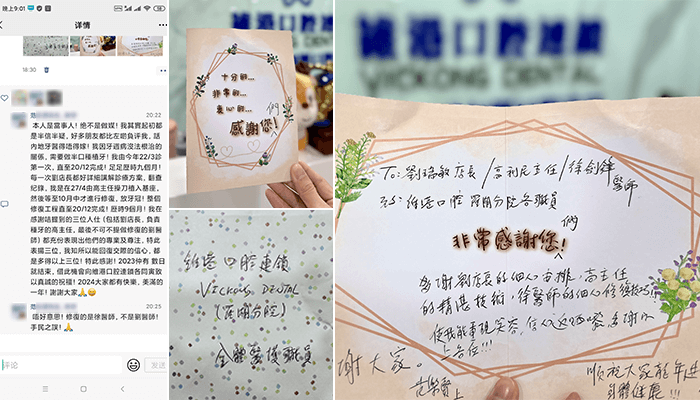 晚上9:01
详情
18:30
20:22
本人是當事人! 他不是做媒! 我其實起初都
是半信半疑, 好多朋友都比左啲負评我, 話
內地牙醫得唔得㗎! 我因牙週病沒法根治的
關係, 需要做半口種植牙! 我由今年22/3診
第一次, 直至20/12完成! 足足歷時九個月!
每一次劉店長都好詳細講解診療方案, 翻查
紀錄, 我是在27/4由高主任操刀植入基座,
然後等至10月中才進行修復, 放牙冠! 整個
修復工程直至20/12完成! 歷時9個月! 我在
感謝唔曬到的三位人仕 (包括劉店長, 負責
種牙的高主任, 最後不可不提做修復的劉醫師)
都充份表現出他們的專業及專注, 特此
表揚三位, 我知所以能回復交際的信心, 都
是多得以上三位! 特此感謝! 2023仲有 數日
就結束, 借此機會向維港口腔連鎖各同寅致
以真誠的祝福! 2024大家都有快樂, 美滿的
一年! 謝謝大家🙏😄
20:31
唔好意思! 修復的是徐醫師, 不是劉醫師!
手民之誤! 🙏
评论
发送
十分的...
非常的...
衷心的...
們
感謝您!
維港口腔連鎖
VICKONG DENTAL
(羅湖分院)
全體醫護職員
維港口腔連鎖
VICKONG DENTAL
To: 劉瑞敏店長/高利民主任/徐劍鋒醫師
維港口腔 羅湖分院各職員
們
非常感謝您!
多謝劉店長的細心安排, 高主任
的精湛技術, 徐醫師的細心修復技巧!!
使我能重現笑容,
謝大家。
上
順祝大家龍年進
身體健康!!!